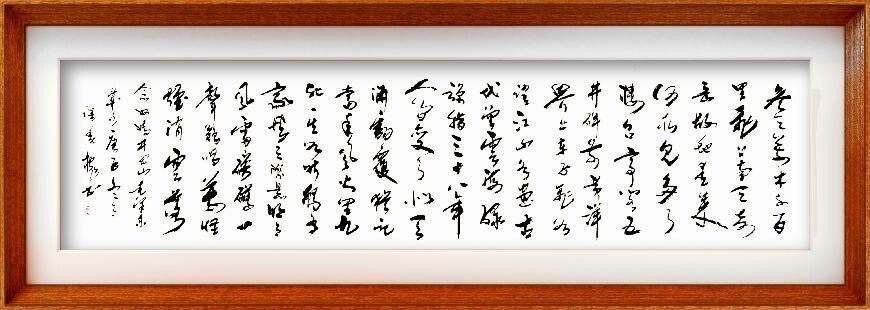 参天万木千百
里飞上南天奇
岳故地重来
何所见多了
楼台亭阁五
井碑前黄洋
界上车子飞如
跃江山如画古
代曾云海绿
弹指三十八年
人间变了似天
渊翻覆犹记
当年烽火里九
死一生如昨独有
豪情天际悬明月
风雷磅礴一
声鸡唱万怪
烟消云落
念奴娇井冈山毛泽东